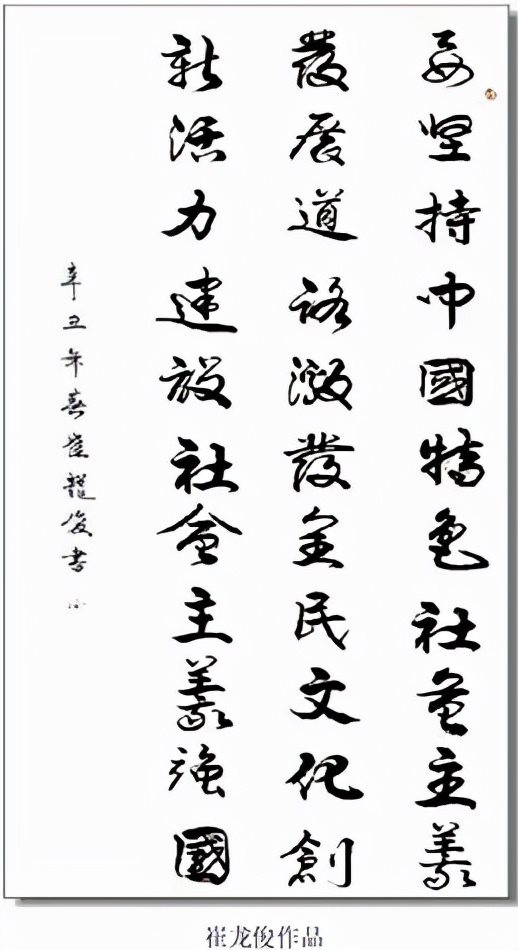 要坚持中國特色社會主義
發展道路激發全民文化創
新活力建設社會主義強國
辛丑年春崔龍俊書
崔龙俊作品